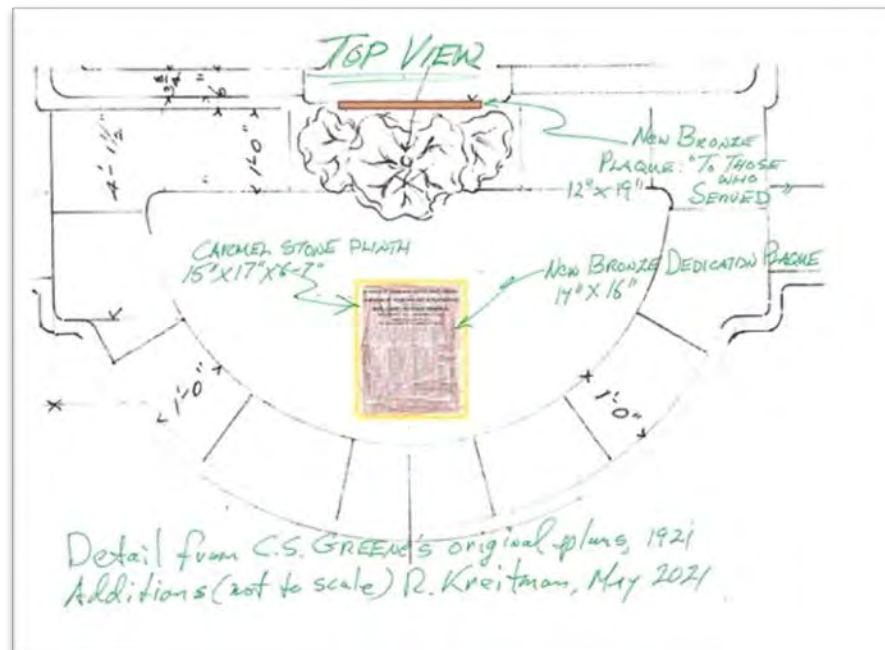 TOP VIEW
3/4"
4'-1 1/2"
1'-0"
NEW BRONZE
PLAQUE: "TO THOSE
WHO
12"X19" SERVED"
CARMEL STONE PLINTH
15"X17"X6-7"
NEW BRONZE DEDICATION PLAQUE
14"X16"
1'-0"
1'-0"
Detail from C.S. GREENE's original plans, 1921
Additions (not to scale) R. Kreitman, May 2021